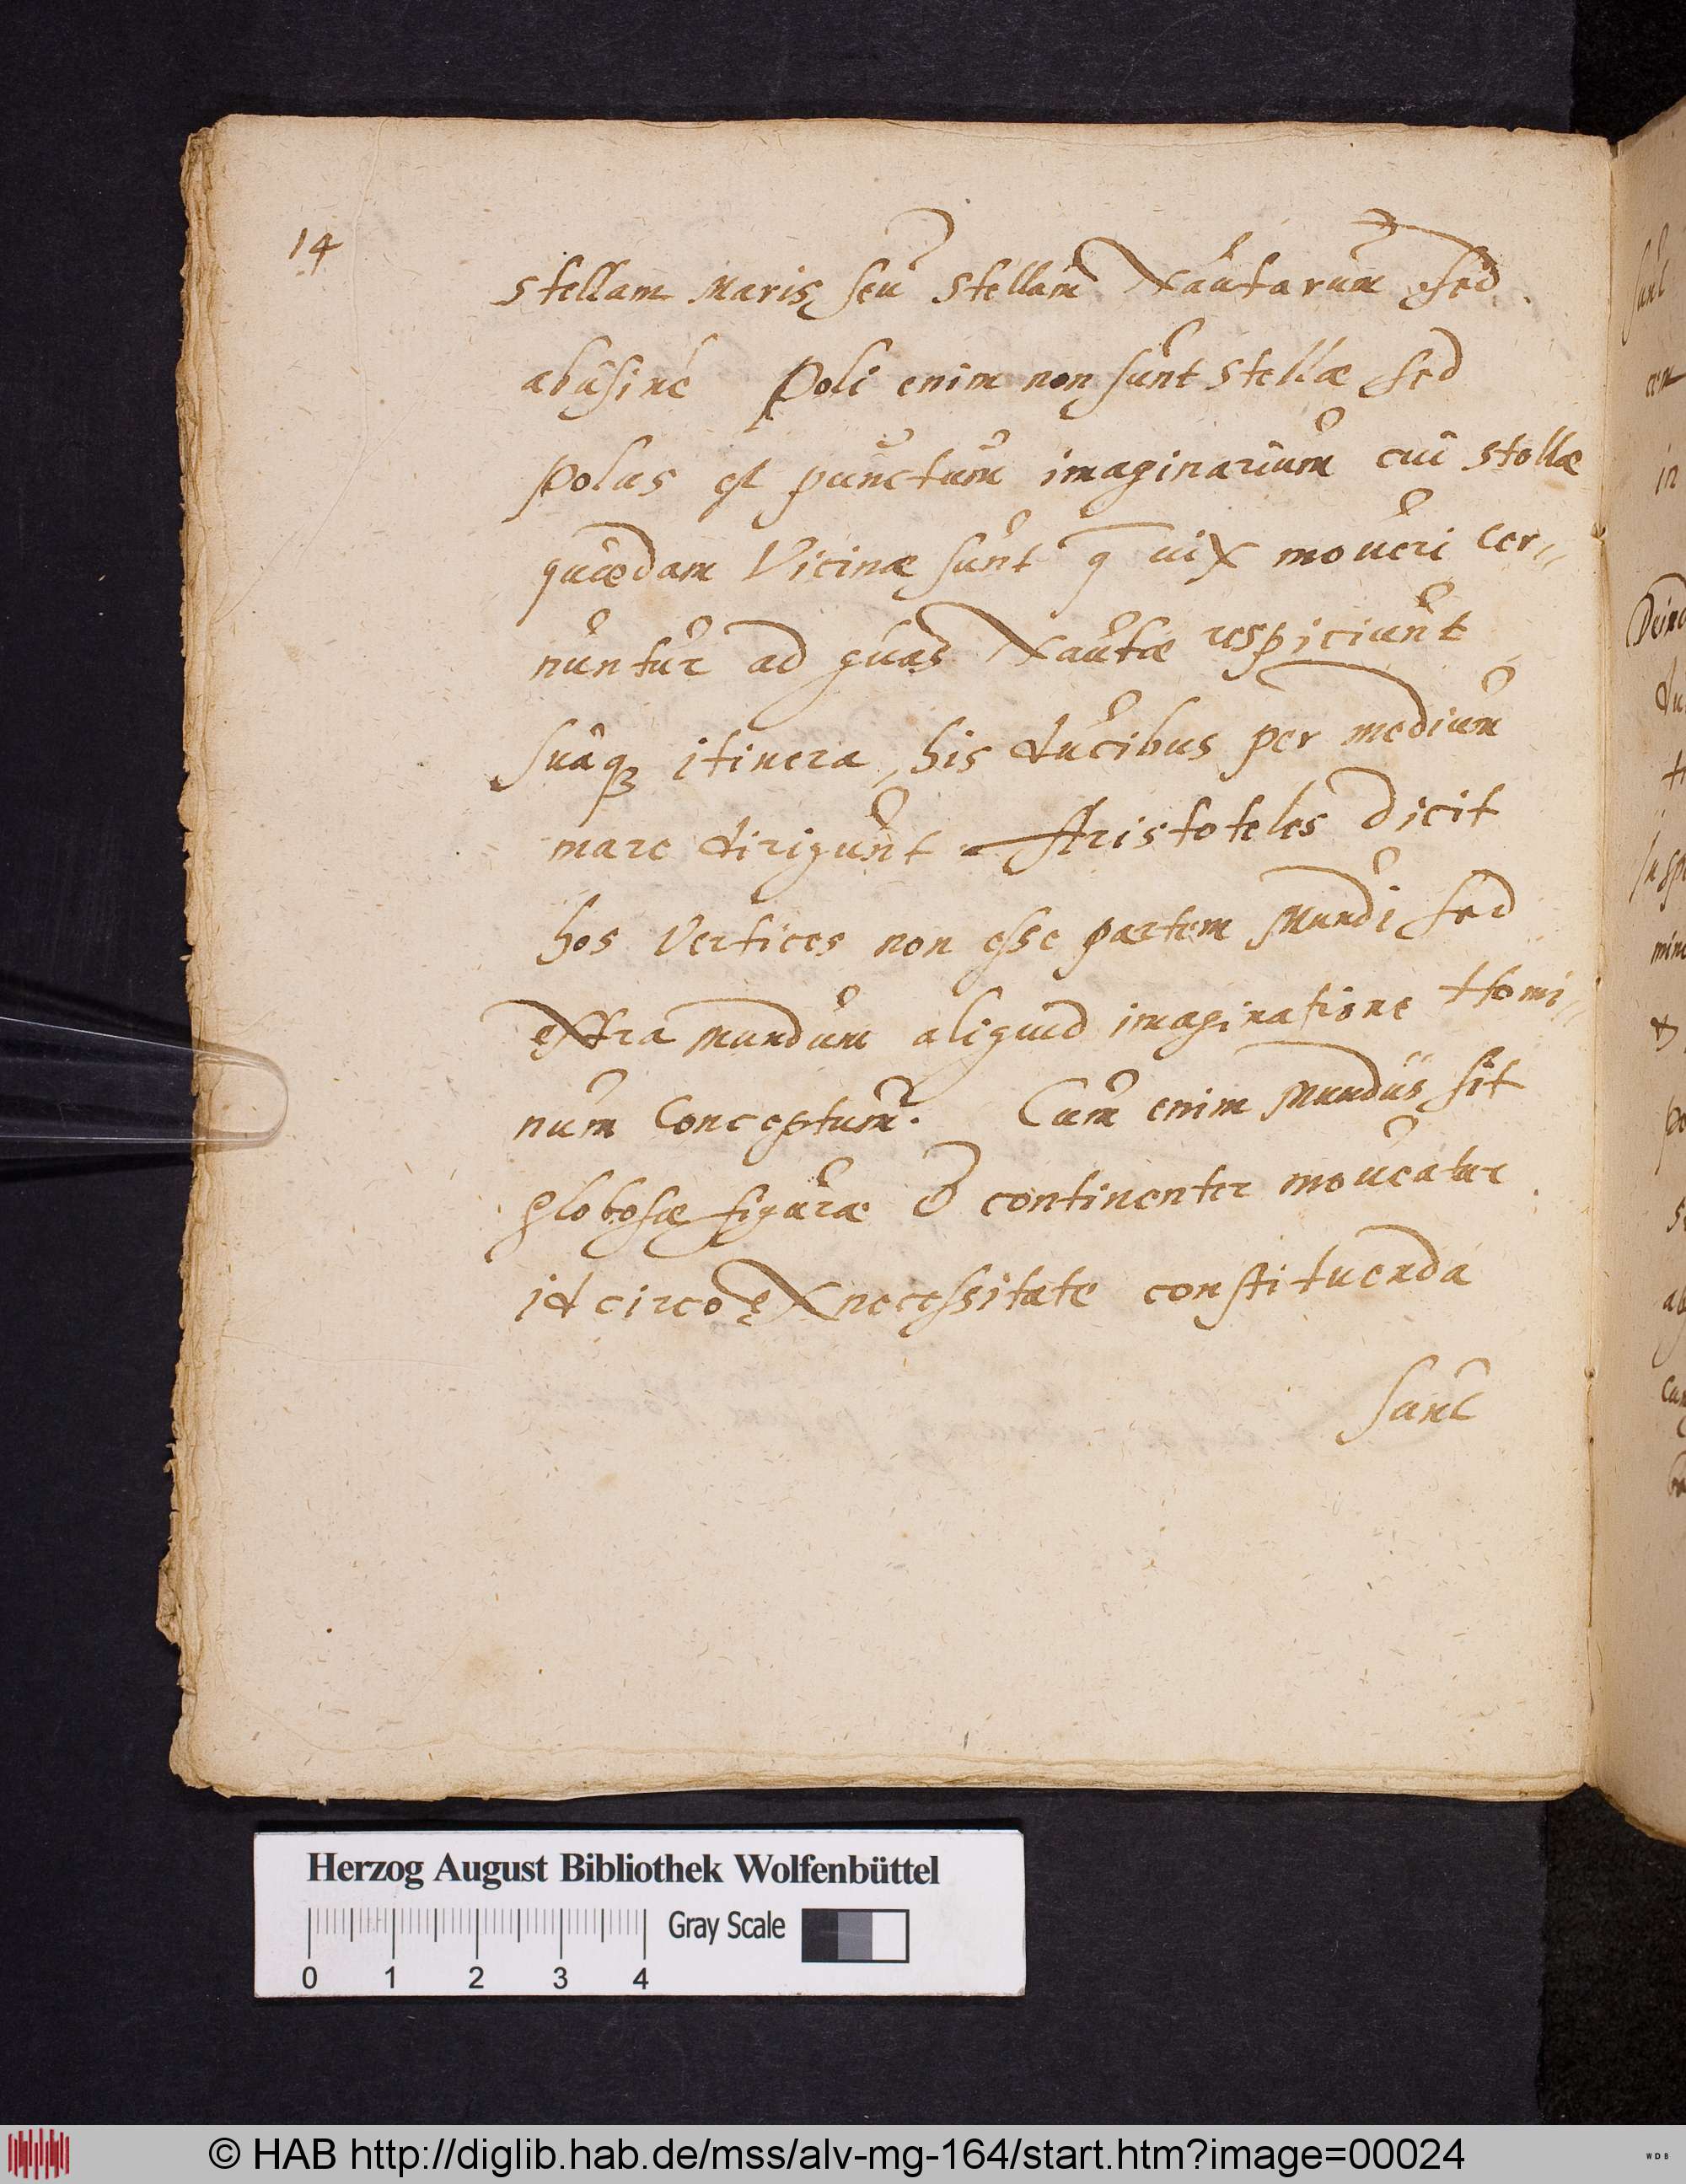 14
stellam Maris, seu stellam Nautarum sed
abusive Poli enim non sunt stellæ sed
Polus est punctum imaginarium cui stellæ
quædam Vicinæ sunt q vix moveri cer„
nuntur ad quas Nautæ respiciunt
Suaq₃ itinera, his ducibus per medium
mare dirigunt Aristoteles dicit
hos Vertices non esse partem Mundi sed
extra Mundum aliquid imaginatione Homi„
num Conceptum. Cum enim Mundus sit
globosæ figuræ & continenter moveatur
id circo ex necessitate constituenda
sunt
sunt
in
Herzog August Bibliothek Wolfenbüttel
Gray Scale
0 1 2 3 4
© HAB http://diglib.hab.de/mss/alv-mg-164/start.htm?image=00024
WDB